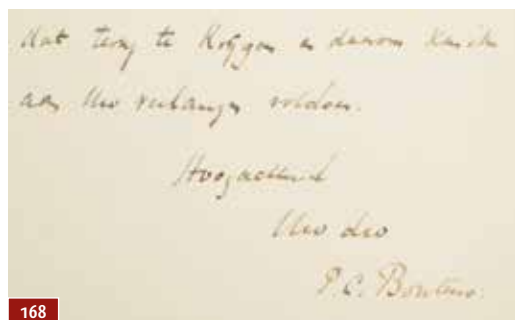 dat terug te krijgen en daarom kan ik
aan Uw verlangen voldoen.
Hoogachtend
Uw dw
P.C. Boutens.
168